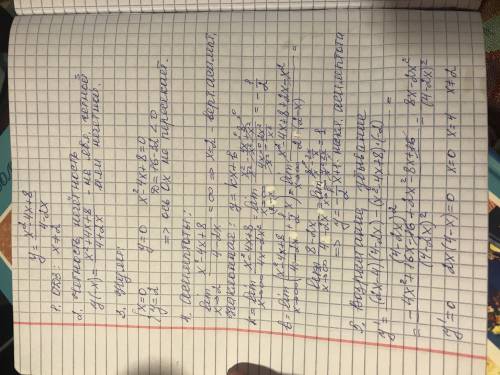 y = x²-4x+8 / 4-2x
1. ОДЗ x≠2
2. Четность, нечётность
y(-x) = x²+4x+8 / 4+2x - не явл. четной или нечётной.
3. Нули:
{x=0, y=2
y=0 x²-4x+8=0
D=16-32<0
=> ось ox не пересекает.
4. Асимптоты:
lim x→2 x²-4x+8 / 4-2x = ∞ => x=2 - верт. асимпт.
Наклонная: y=kx+b
k = lim x→∞ x²-4x+8 / 4x-2x² = lim x→∞ = -1/2
b = lim x→∞ (x²-4x+8 / 4-2x + 1/2 x) = lim x→∞ x²-4x+8+2x-x² / 2·(2-x) =
lim x→∞ 8-2x / 4-2x = lim x→∞ = 1
=> y = -1/2 x+1. накл. асимптота
5. Возрастание, убывание
y' = (2x-4)(4-2x)-(x²-4x+8)(-2) / (4-2x)² =
= -4x²+16x-16+2x²-8x+16 / (4-2x)² = 8x-2x² / (4-2x)²
y'=0 2x(4-x)=0 x=0 x=4 x≠2